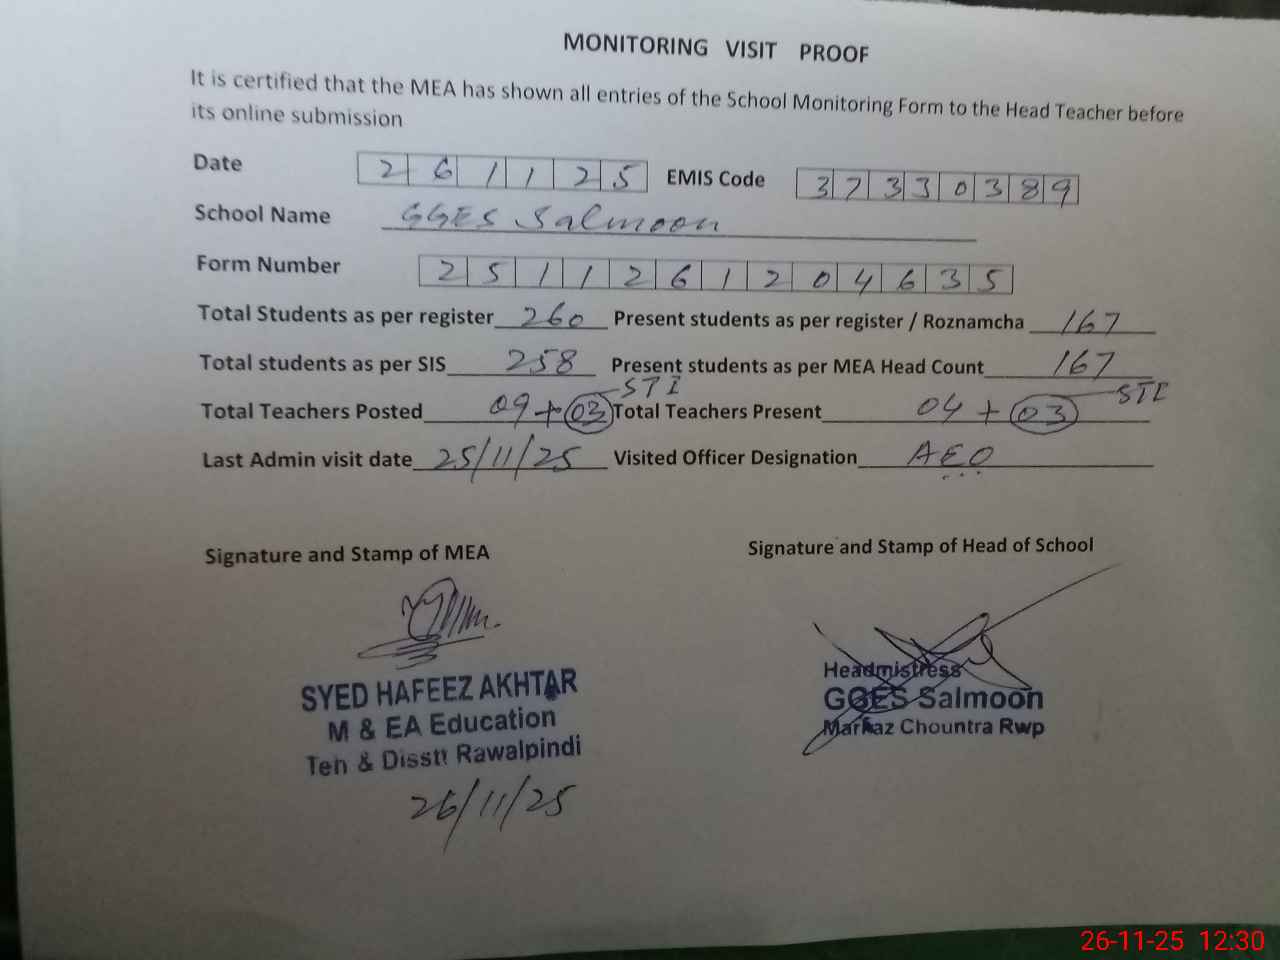 MONITORING VISIT PROOF
It is certified that the MEA has shown all entries of the School Monitoring Form to the Head Teacher before
its online submission
Date 2 6 1 1 2 5 EMIS Code 3 7 3 3 0 3 8 9
School Name GGES Salmoon
Form Number 2 5 1 1 2 6 1 2 0 4 6 3 5
Total Students as per register 260 Present students as per register / Roznamcha 167
Total students as per SIS 258 Present students as per MEA Head Count 167
Total Teachers Posted 09 + 03 STI Total Teachers Present 04 + 03 STI
Last Admin visit date 25/11/25 Visited Officer Designation AEO
Signature and Stamp of MEA Signature and Stamp of Head of School
SYED HAFEEZ AKHTAR
M & EA Education
Teh & Disstt Rawalpindi
26/11/25
Headmistress
GGES Salmoon
Markaz Chountra Rwp
26-11-25 12:30